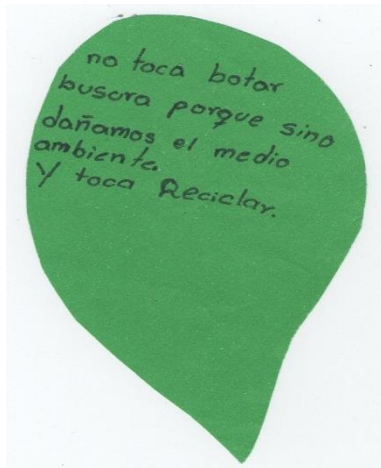 no toca botar
buscra porque sino
dañamos el medio
ambiente.
Y toca Reciclar.